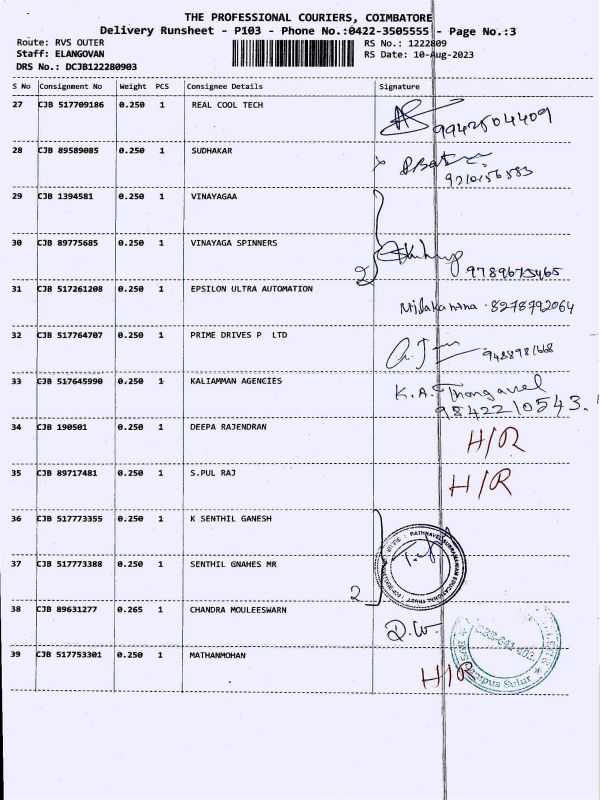 THE PROFESSIONAL COURIERS, COIMBATORE
Delivery Runsheet - P103 - Phone No.:0422-3505555 - Page No.:3
Route: RVS OUTER
RS No.: 1222809
Staff: ELANGOVAN
RS Date: 10-Aug-2023
DRS No.: DCJB122280903
S No Consignment No Weight PCS Consignee Details Signature
27 CJB 517709186 0.250 1 REAL COOL TECH
9942504409
28 CJB 89589085 0.250 1 SUDHAKAR
29 CJB 1394581 0.250 1 VINAYAGAA
30 CJB 89775685 0.250 1 VINAYAGA SPINNERS
2 9789673465
31 CJB 517261208 0.250 1 EPSILON ULTRA AUTOMATION
8278792064
32 CJB 517764707 0.250 1 PRIME DRIVES P LTD
33 CJB 517645990 0.250 1 KALIAMMAN AGENCIES
K.A. Thangavel
9842210543.
34 CJB 190501 0.250 1 DEEPA RAJENDRAN
H/R
35 CJB 89717481 0.250 1 S.PUL RAJ
H/R
36 CJB 517773355 0.250 1 K SENTHIL GANESH
37 CJB 517773388 0.250 1 SENTHIL GNAHES MR
2
38 CJB 89631277 0.265 1 CHANDRA MOULEESWARN
39 CJB 517753301 0.250 1 MATHANMOHAN
H/R